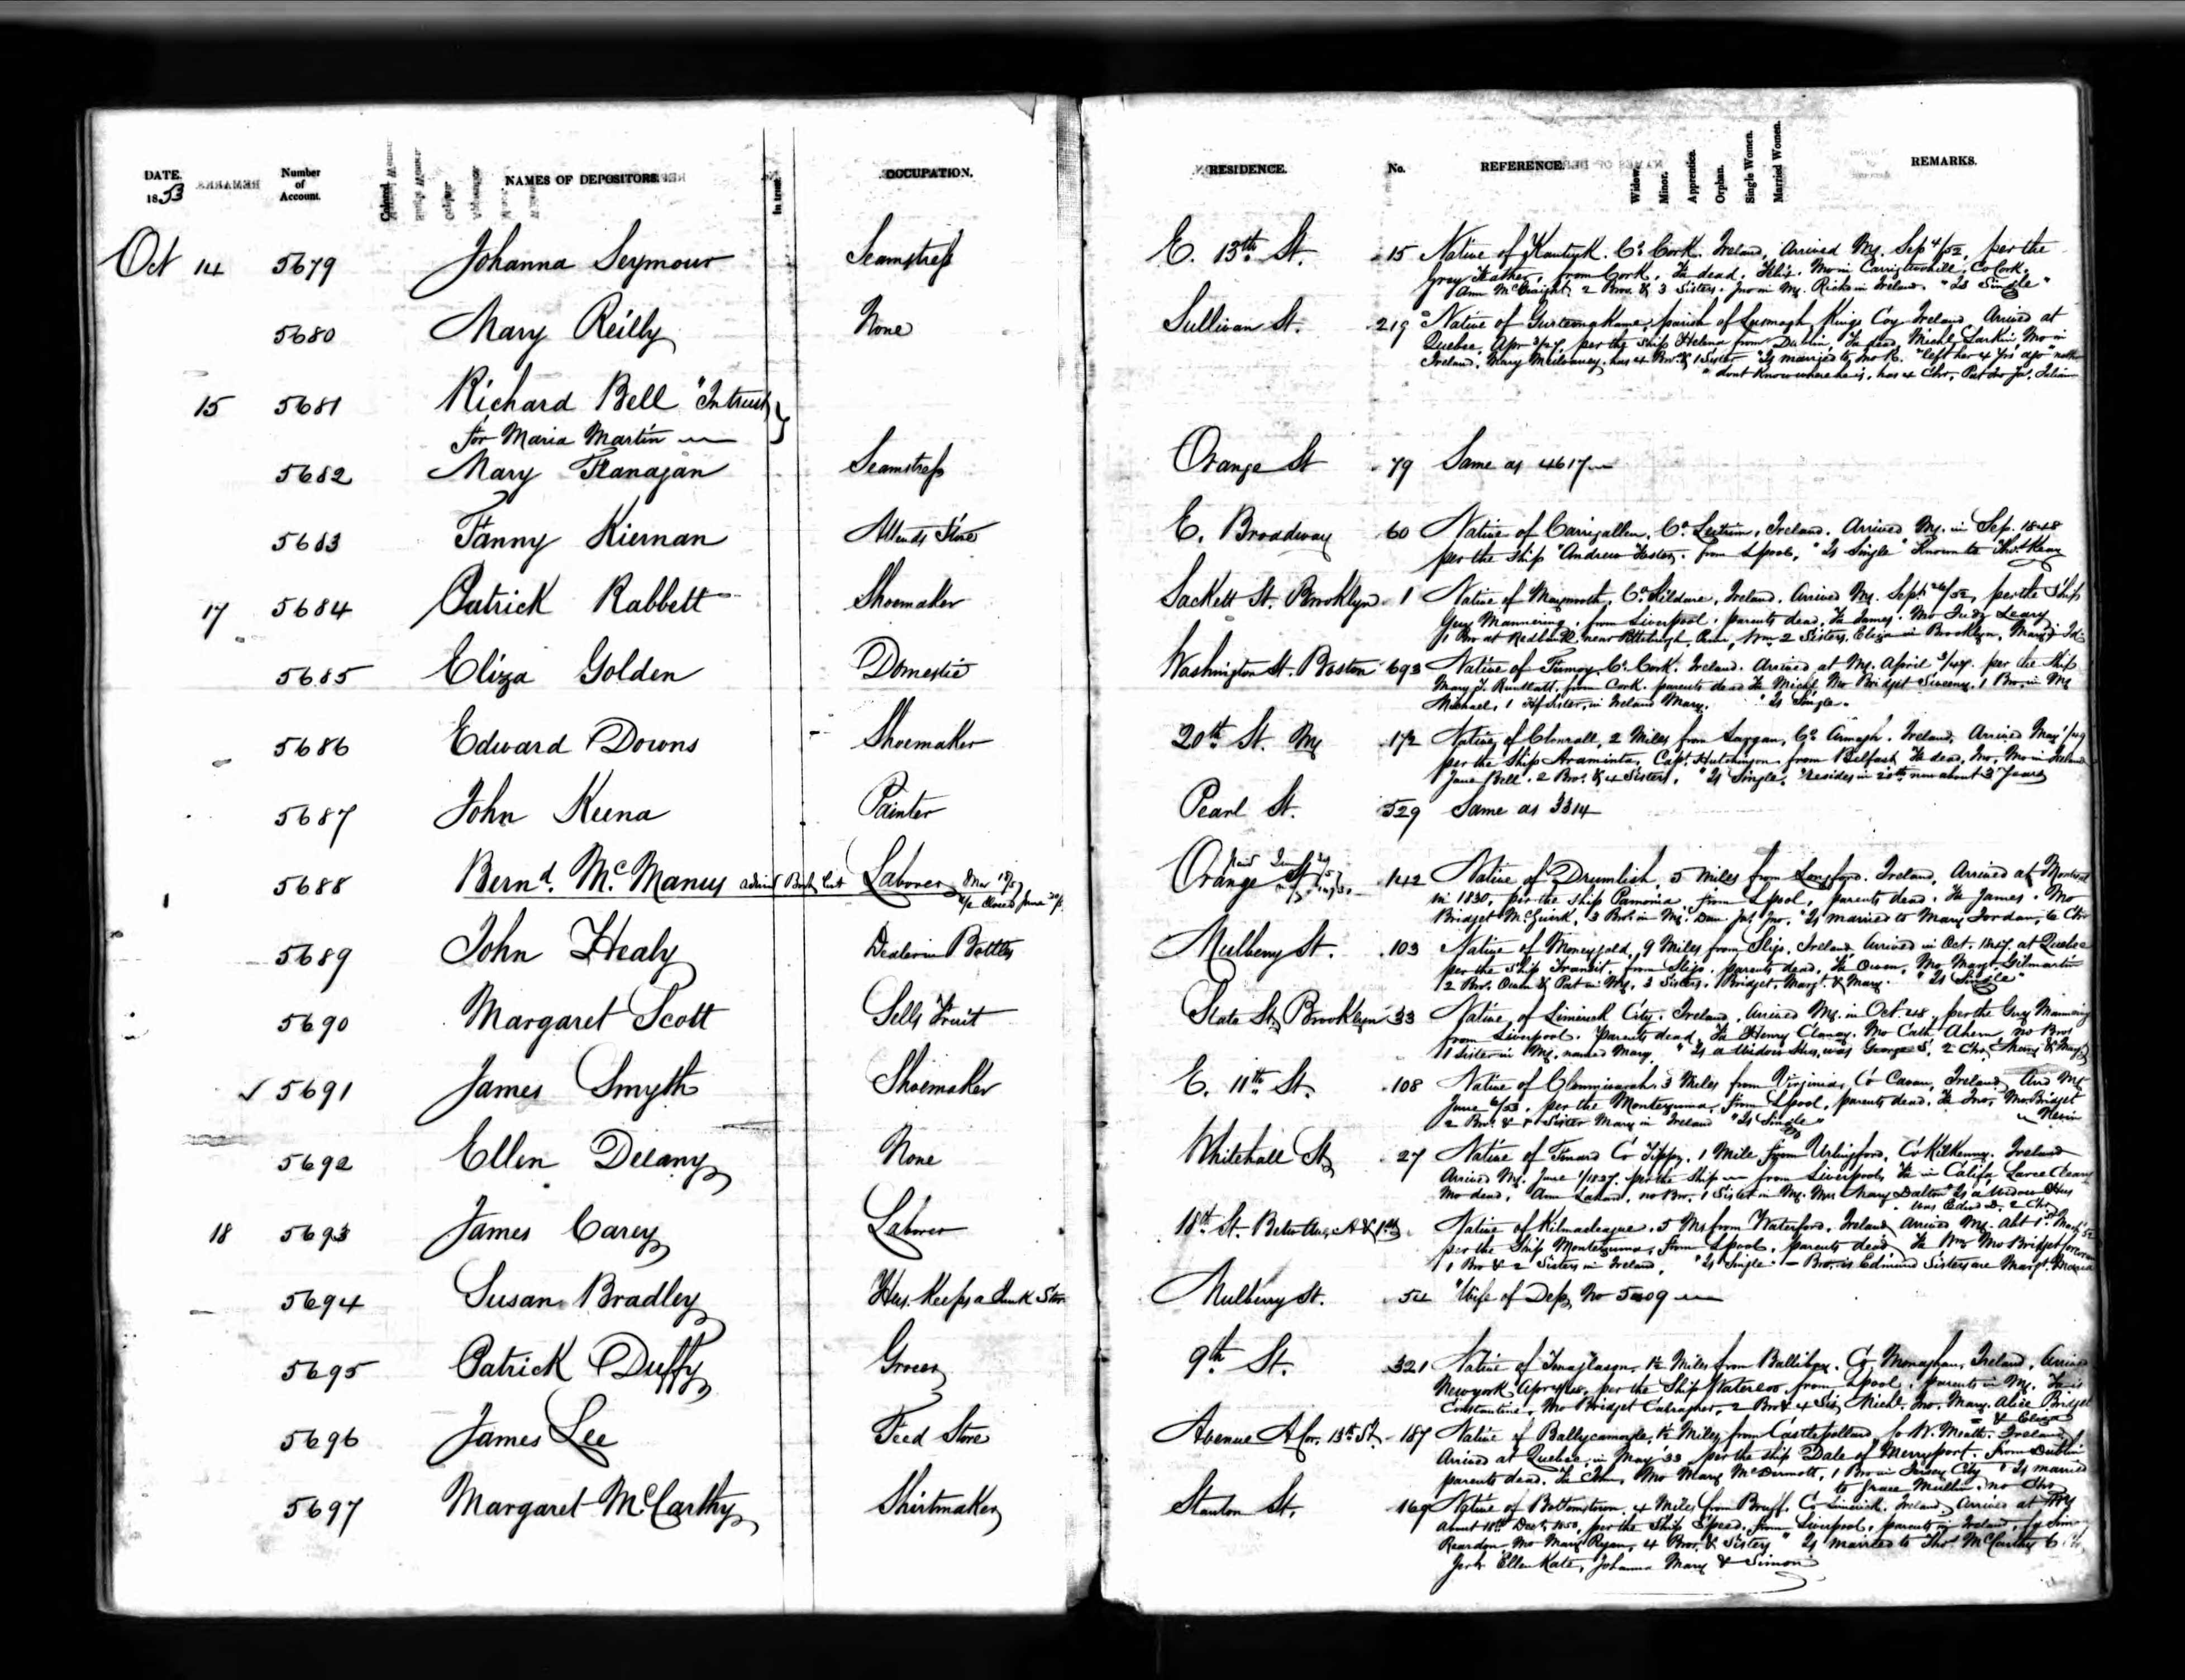 DATE.
1853
Number
of
Account.
NAMES OF DEPOSITORS.
In trust.
OCCUPATION.
RESIDENCE.
No.
REFERENCE.
Widow.
Minor.
Apprentice.
Orphan.
Single Women.
Married Women.
REMARKS.
Oct 14 5679 Johanna Seymour Seamstress E. 13th St. 15 Native of Kantuck. Co. Cork. Ireland, Arrived NY. Sep 4/52, per the
Grey Feather, from Cork, Fa dead, Mo in Carrigtwohill, Co Cork,
Ann 2 Bros. & 3 Sisters. Jno in NY. Rich in Ireland. "Is Single"
5680 Mary Reilly None Sullivan St. 219 Native of parish of Lusmagh Kings Coy Ireland Arrived at
Quebec, Apr per the ship Helena from Dublin, Fa dead, Michl Larkin, Mo in
Ireland, Mary has 4 Bro. & 1 Sister "Is married to Jno R. "left her 4 yrs ago"
"dont know where he is, has 4 Chr,
15 5681 Richard Bell "In trust
for Maria Martin
5682 Mary Flanagan Seamstress Orange St 79 Same as 4617
5683 Fanny Kiernan Attends Store E. Broadway 60 Native of Carrigallen, Co. Leitrim, Ireland. Arrived NY. in Sep. 1848
per the Ship "Andrew Foster, from Lpool, "Is Single" Known to
17 5684 Patrick Rabbett Shoemaker Sackett St. Brooklyn 1 Native of Maynooth, Co. Kildare, Ireland. Arrived NY. Sept 26/52, per the Ship
Guy Mannering, from Liverpool, parents dead, Fa James. Mo Judy Leary
1 Bro at near Pittsburgh, Wm 2 Sisters, Eliza in Brooklyn,
5685 Eliza Golden Domestic Washington St. Boston 693 Native of Co. Cork. Ireland. Arrived at NY. April per the Ship
Mary from Cork. parents dead Fa Michl, Mo Bridget Sweeny. 1 Bro. in NY
Michael, 1 Hf Sister, in Ireland Mary. "Is Single.
5686 Edward Downs Shoemaker 20th St. NY 172 Native of 2 Miles from Lurgan, Co. Armagh, Ireland, Arrived May
per the Ship Araminta, Capt. Hutchinson from Belfast Fa dead, Jno, Mo in Ireland
Jane Bell, 2 Bro. & 4 Sisters, "Is Single. resides in 20th now about 3 Years
5687 John Keena Painter Pearl St. 529 Same as 3314
5688 Bernd. McManus Laborer Orange St 142 Native of Drumlish, 5 Miles from Longford. Ireland, Arrived at Montreal
in 1830, per the Ship from Lpool, parents dead. Fa James. Mo
Bridget McGuirk, 3 Bro. in NY. Jno. "Is married to Mary Jordan, 6 Chr
5689 John Healy Dealer in Bottles Mulberry St. 103 Native of Moneygold, 9 Miles from Sligo, Ireland, Arrived in Oct. 1847. at Quebec
per the Ship Transit, from Sligo, parents dead, Fa Owen, Mo Margt Gilmartin
2 Bro. Owen & Pat in NY. 3 Sisters, Bridget, Margt. & Mary. "Is Single"
5690 Margaret Scott Sells Fruit State St. Brooklyn 33 Native of Limerick City, Ireland, Arrived NY. in Oct. 48, per the Guy Mannering
from Liverpool. parents dead, Fa Henry Clancy. Mo Cath Ahern, no Bro.
1 Sister in NY. named Mary, "Is a Widow Hus. was George S, 2 Chr. Henry &
5691 James Smyth Shoemaker E. 11th St. 108 Native of 3 Miles from Virginia, Co Cavan, Ireland, Arrd NY
June 6/53, per the Montezuma, from Lpool, parents dead. Fa Jno, Mo. Bridget
2 Bro. & 1 Sister Mary in Ireland "Is Single"
5692 Ellen Delany None Whitehall St 27 Native of Co Tippy. 1 Mile from Urlingford, Co Kilkenny, Ireland
Arrived NY. June per the Ship from Liverpool, Fa in Califa,
Mo dead, Ann no Bro. 1 Sister in NY. Mrs Mary Dalton "Is a Widow Hus
was Edwd D, 2 Chr.
18 5693 James Carey Laborer 18th St. Betw Avs, A & 1st Native of 5 Ms from Waterford, Ireland, Arrived NY. abt
per the Ship Montezuma, from Lpool, parents dead, Fa Wm Mo Bridget
1 Bro & 2 Sisters in Ireland, "Is Single. Bro. is Edmund Sisters are Margt. Maria
5694 Susan Bradley Hus. Keeps a Junk Stor Mulberry St. 54 "Wife of Dep, No 5409
5695 Patrick Duffy Grocer 9th St. 321 Native of 1½ Miles from Co Monaghan, Ireland, Arrived
Newyork per the Ship Waterloo from Lpool, parents in NY. Fa is
Constantine, Mo Bridget 2 Bro & 4 Sis, Michl. Jno. Mary. Alice Bridget
& Eliza
5696 James Lee Feed Store Avenue A Cor. 13th St. 187 Native of 1½ Miles from Castlepollard Co W. Meath. Ireland,
Arrived at Quebec, in May 33 per the Ship Dale of Merryport. from Dublin
parents dead, Fa Mo Mary McDermott, 1 Bro in Jersey City "Is married
to Grace Mullin, no Chr
5697 Margaret McCarthy Shirtmaker Stanton St. 169 Native of Bottomstown, 4 Miles from Bruff. Co Limerick. Ireland, Arrived at NY
about 11th Dec. 1850, per the Ship from Liverpool, parents in Ireland,
Reardon Mo Mary Ryan, 4 Bro. & Sisters "Is married to Thos McCarthy 6
Ellen Kate, Johanna Mary & Simon